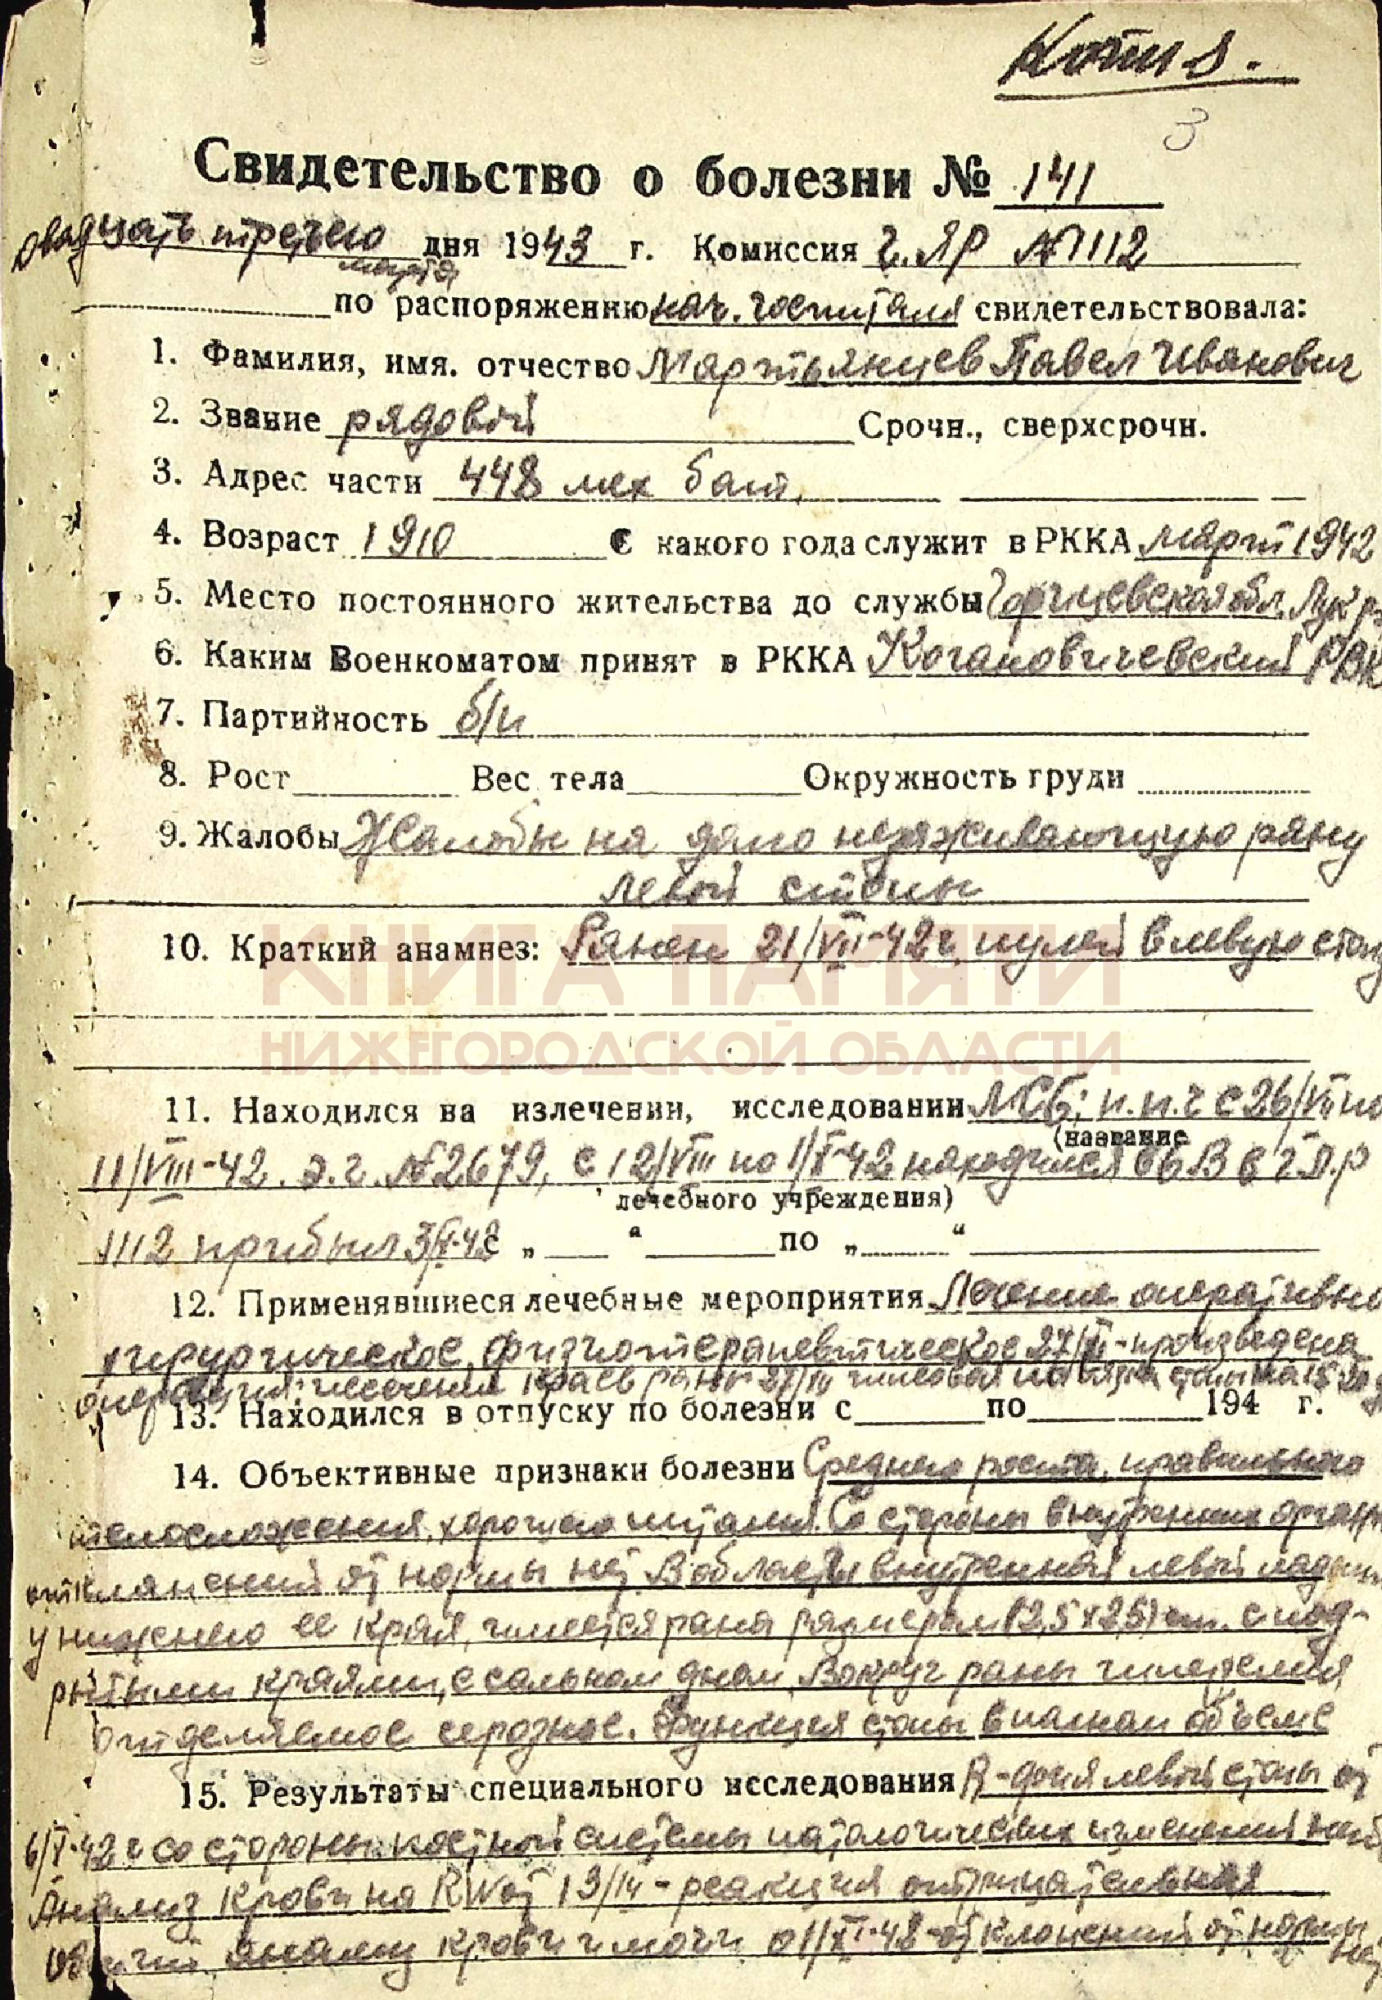 Копия.
3
Свидетельство о болезни № 141
двадцать третьего дня 1943 г. Комиссия г. ЯР № 1112
марта
по распоряжению нач. госпиталя свидетельствовала:
1. Фамилия, имя. отчество Мартьянцев Павел Иванович
2. Звание рядовой Срочн., сверхсрочн.
3. Адрес части 448 мех бат.
4. Возраст 1910 С какого года служит в РККА март 1942
5. Место постоянного жительства до службы обл.
6. Каким Военкоматом принят в РККА Когановичевский РВК
7. Партийность б/п
8. Рост Вес тела Окружность груди
9. Жалобы Жалобы на рану
левой стопы
10. Краткий анамнез: Ранен 21/VII-42 г. пулей в левую стопу
КНИГА ПАМЯТИ
НИЖЕГОРОДСКОЙ ОБЛАСТИ
11. Находился на излечении, исследовании МСБ; п.п.г с 26/VII по
(название
11/VIII-42. э.г. № 2679, с 12/VIII по 1/X-42 находился
лечебного учреждения)
1112 прибыл с „ “ по „ “
12. Применявшиеся лечебные мероприятия Лечение оперативно
хирургическое, физиотерапевтическое произведена
операция: иссечения краев раны
13. Находился в отпуску по болезни с по 194 г.
14. Объективные признаки болезни Среднего роста, правильного
телосложения, хорошего питания. Со стороны внутренних органов
отклонений от нормы нет. В области внутренней левой
у нижнего ее края, имеется рана размером (2,5 х 2,5) см. с под-
рытыми краями, с сальным дном. Вокруг раны
отделяемое серозное. Функция стопы в полном объеме
15. Результаты специального исследования R-фия левой стопы от
6/X-42 г со стороны костной системы патологических изменений нет
Анализ крови на RW от 13/III - реакция отрицательная
анализ крови и мочи отклонений от нормы нет